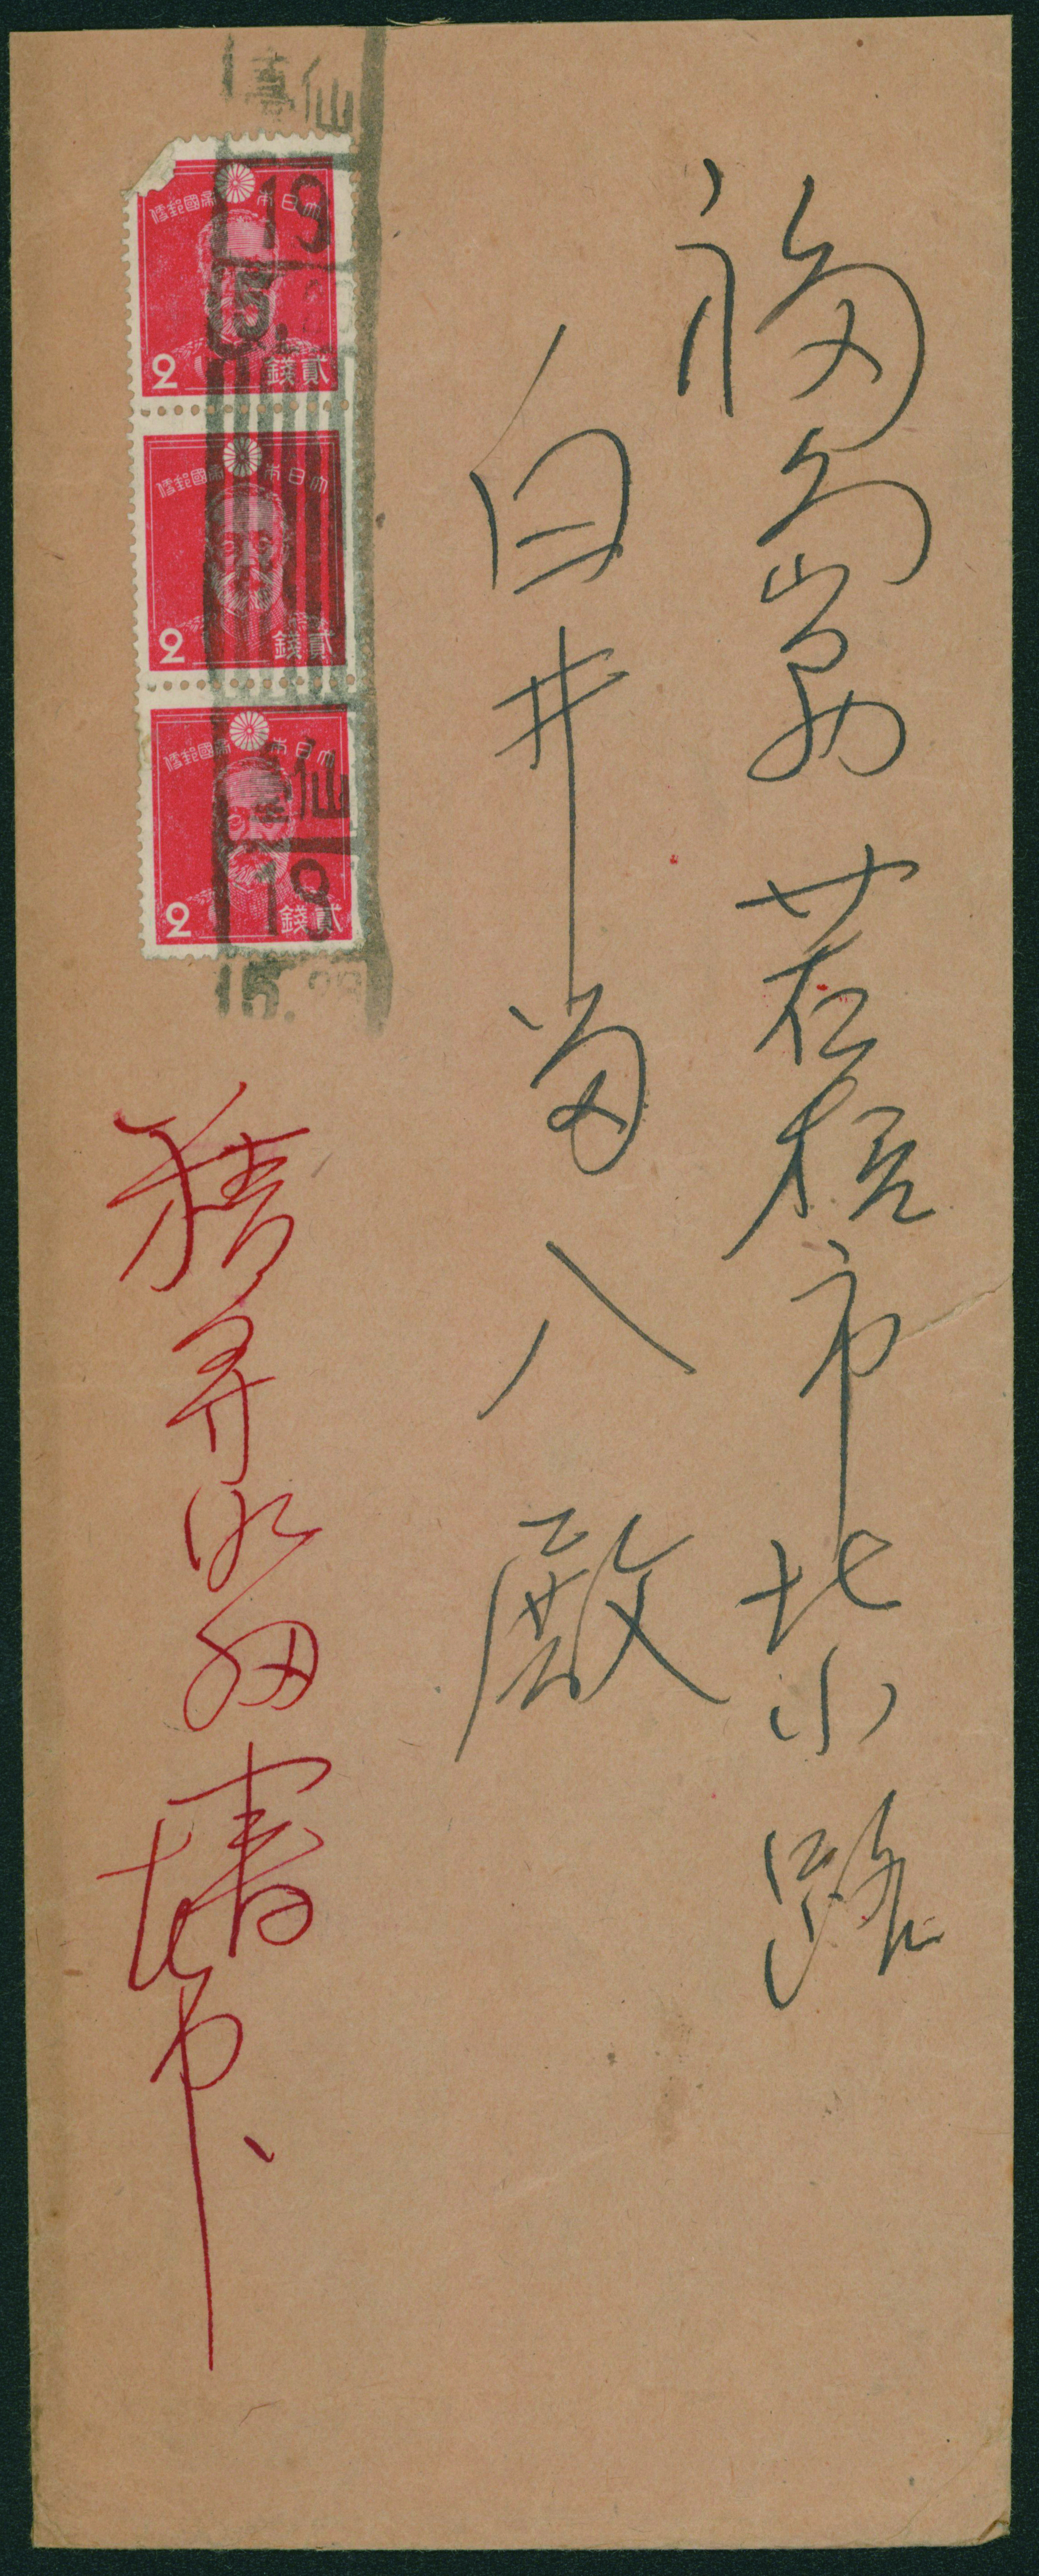 福島縣若松市北小路
臼井留八殿
積算明細書在中、
仙臺
19
5.
大日本帝國郵便
2 貳錢
大日本帝國郵便
2 貳錢
大日本帝國郵便
仙
19
2 貳錢